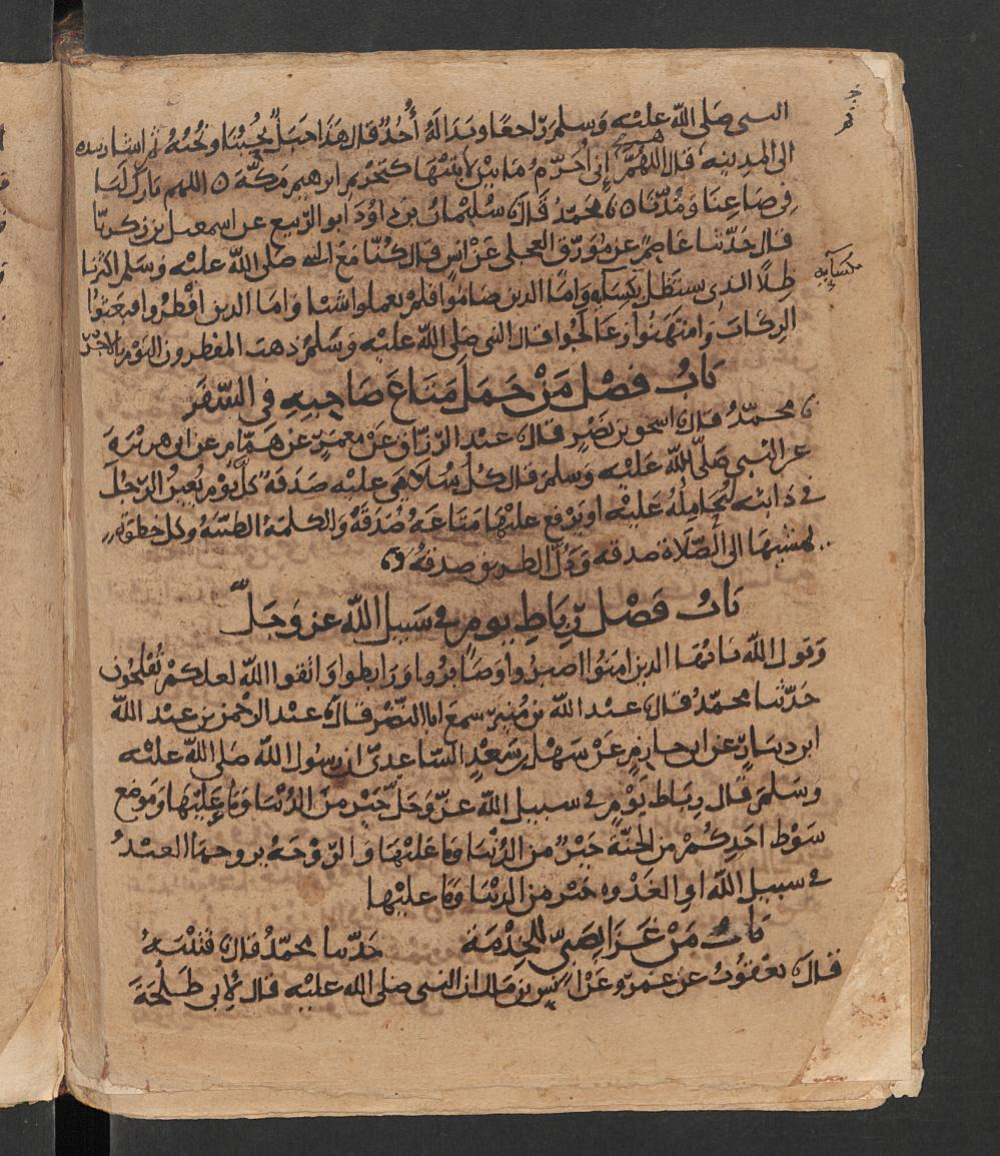 النبى صَلى الله عليْه وَسلم رَاجعًا وبَدَا لَهُ أُحُدٌ قال هَذَا جبَلٌ يُحِبُّنَا ونُحِبُّهُ ثم اشَار بيده
الى المدينه قال اللهُمَّ إنى أُحَرِّمُ مَا بَيْنَ لابَتَيْهَا كَتحْرِيم ابرهيم مَكَّةَ اللهم بَارِكْ لنَا
فِى صَاعِنَا وَمُدِّنَا ن محَمدٌ قالَ سُلَيْمانُ بن دَاوُدَ ابو الرّبيع عن اسمعيل بن زكريّا
قال حَدّثنا عَاصِمٌ عن مُوَرِّق العجلى عَنْ اَنَسٍ قال كُنّا مَعَ النبى صَلى اللهُ عليْه وَسَلم اكثرنا
ظِلاًّ الذى يستظل بكِسَايه وَامّا الذين صَامُوا فلم يعملوا شيئا وَامَا الذين افْطَرُوا فبعَثوُا
الرِكابَ وَامتهَنُوا وَعَالجُوا فقال النبى صَلى اللهُ عليْه وَسَلم ذهبَ المفطرون اليَوْمَ بالاجْرِ
بَابُ فضْل مَنْ حَمَلَ مَتَاعَ صَاحِبِهِ فى السَّفَر
ن محمّدٌ قالَ اسحق بن نَصْرٍ قالَ عبْد الرّزّاق عَنْ مَعمَرٍ عَنْ هَمّام عن ابى هريْرَة
عن النّبى صَلّى اللهُ عَليْه وَسلمَ قال كُل سُلامَى عليْه صَدَقَةٌ كلَّ يوْم يُعِينُ الرّجُلَ
فى دَابّته يُحَامِلُهُ عَليْهَا او يَرْفع عليْهَا مَتَاعَهُ صَدَقَةٌ وَالكلمَةُ الطيّبَةُ وكل خطوَةٍ
يمشيهَا الى الصّلاة صدقه وَدَلُّ الطريق صدقةٌ
بَابُ فَضْل رِبَاطِ يوم فى سَبيل اللهِ عز وَجَلَّ
وَقول اللهِ يَا ايّهَا الذين امَنُوا اصبرُوا وَصَابرُوا وَرَابطوا وَاتقوا اللهَ لعلكمْ تُفلحُون
حَدّثنا محمّدٌ قالَ عبْد الله بن مُنِيرٍ سمعَ ابا النّضْر قالَ عبْد الرّحْمن بن عبْد الله
ابن دينَارٍ عن ابى حازمٍ عَنْ سَهْل بن سَعْدٍ السّاعدىّ ان رسُول الله صَلى اللهُ عليْه
وَسَلمَ قال رِبَاط يَوْمٍ فى سبيل الله عزّ وَجَلّ خيْر منَ الدُّنْيَا وَمَا عَليْهَا وَمَوضع
سَوْط احَدِكُمْ من الجَنّةَ خيْرٌ من الدُّنيَا وَمَا عَليْهَا وَالرّوْحَةُ يروحهَا العبْدُ
فى سبيل الله اوِ الغَدْوه خيْر من الدنْيَا وَمَا عليْها
بَابُ مَنْ غَزَا بِصَبِىٍّ للخِدْمَة حَدّثنا محمّدٌ قالَ قتيْبَةُ
قالَ يعْقوُبُ عَن عَمْرٍو عَنْ اَنَس بن مَالك ان النبى صَلى الله عليْه قال لأبى طَلْحَةَ
بكسَايه